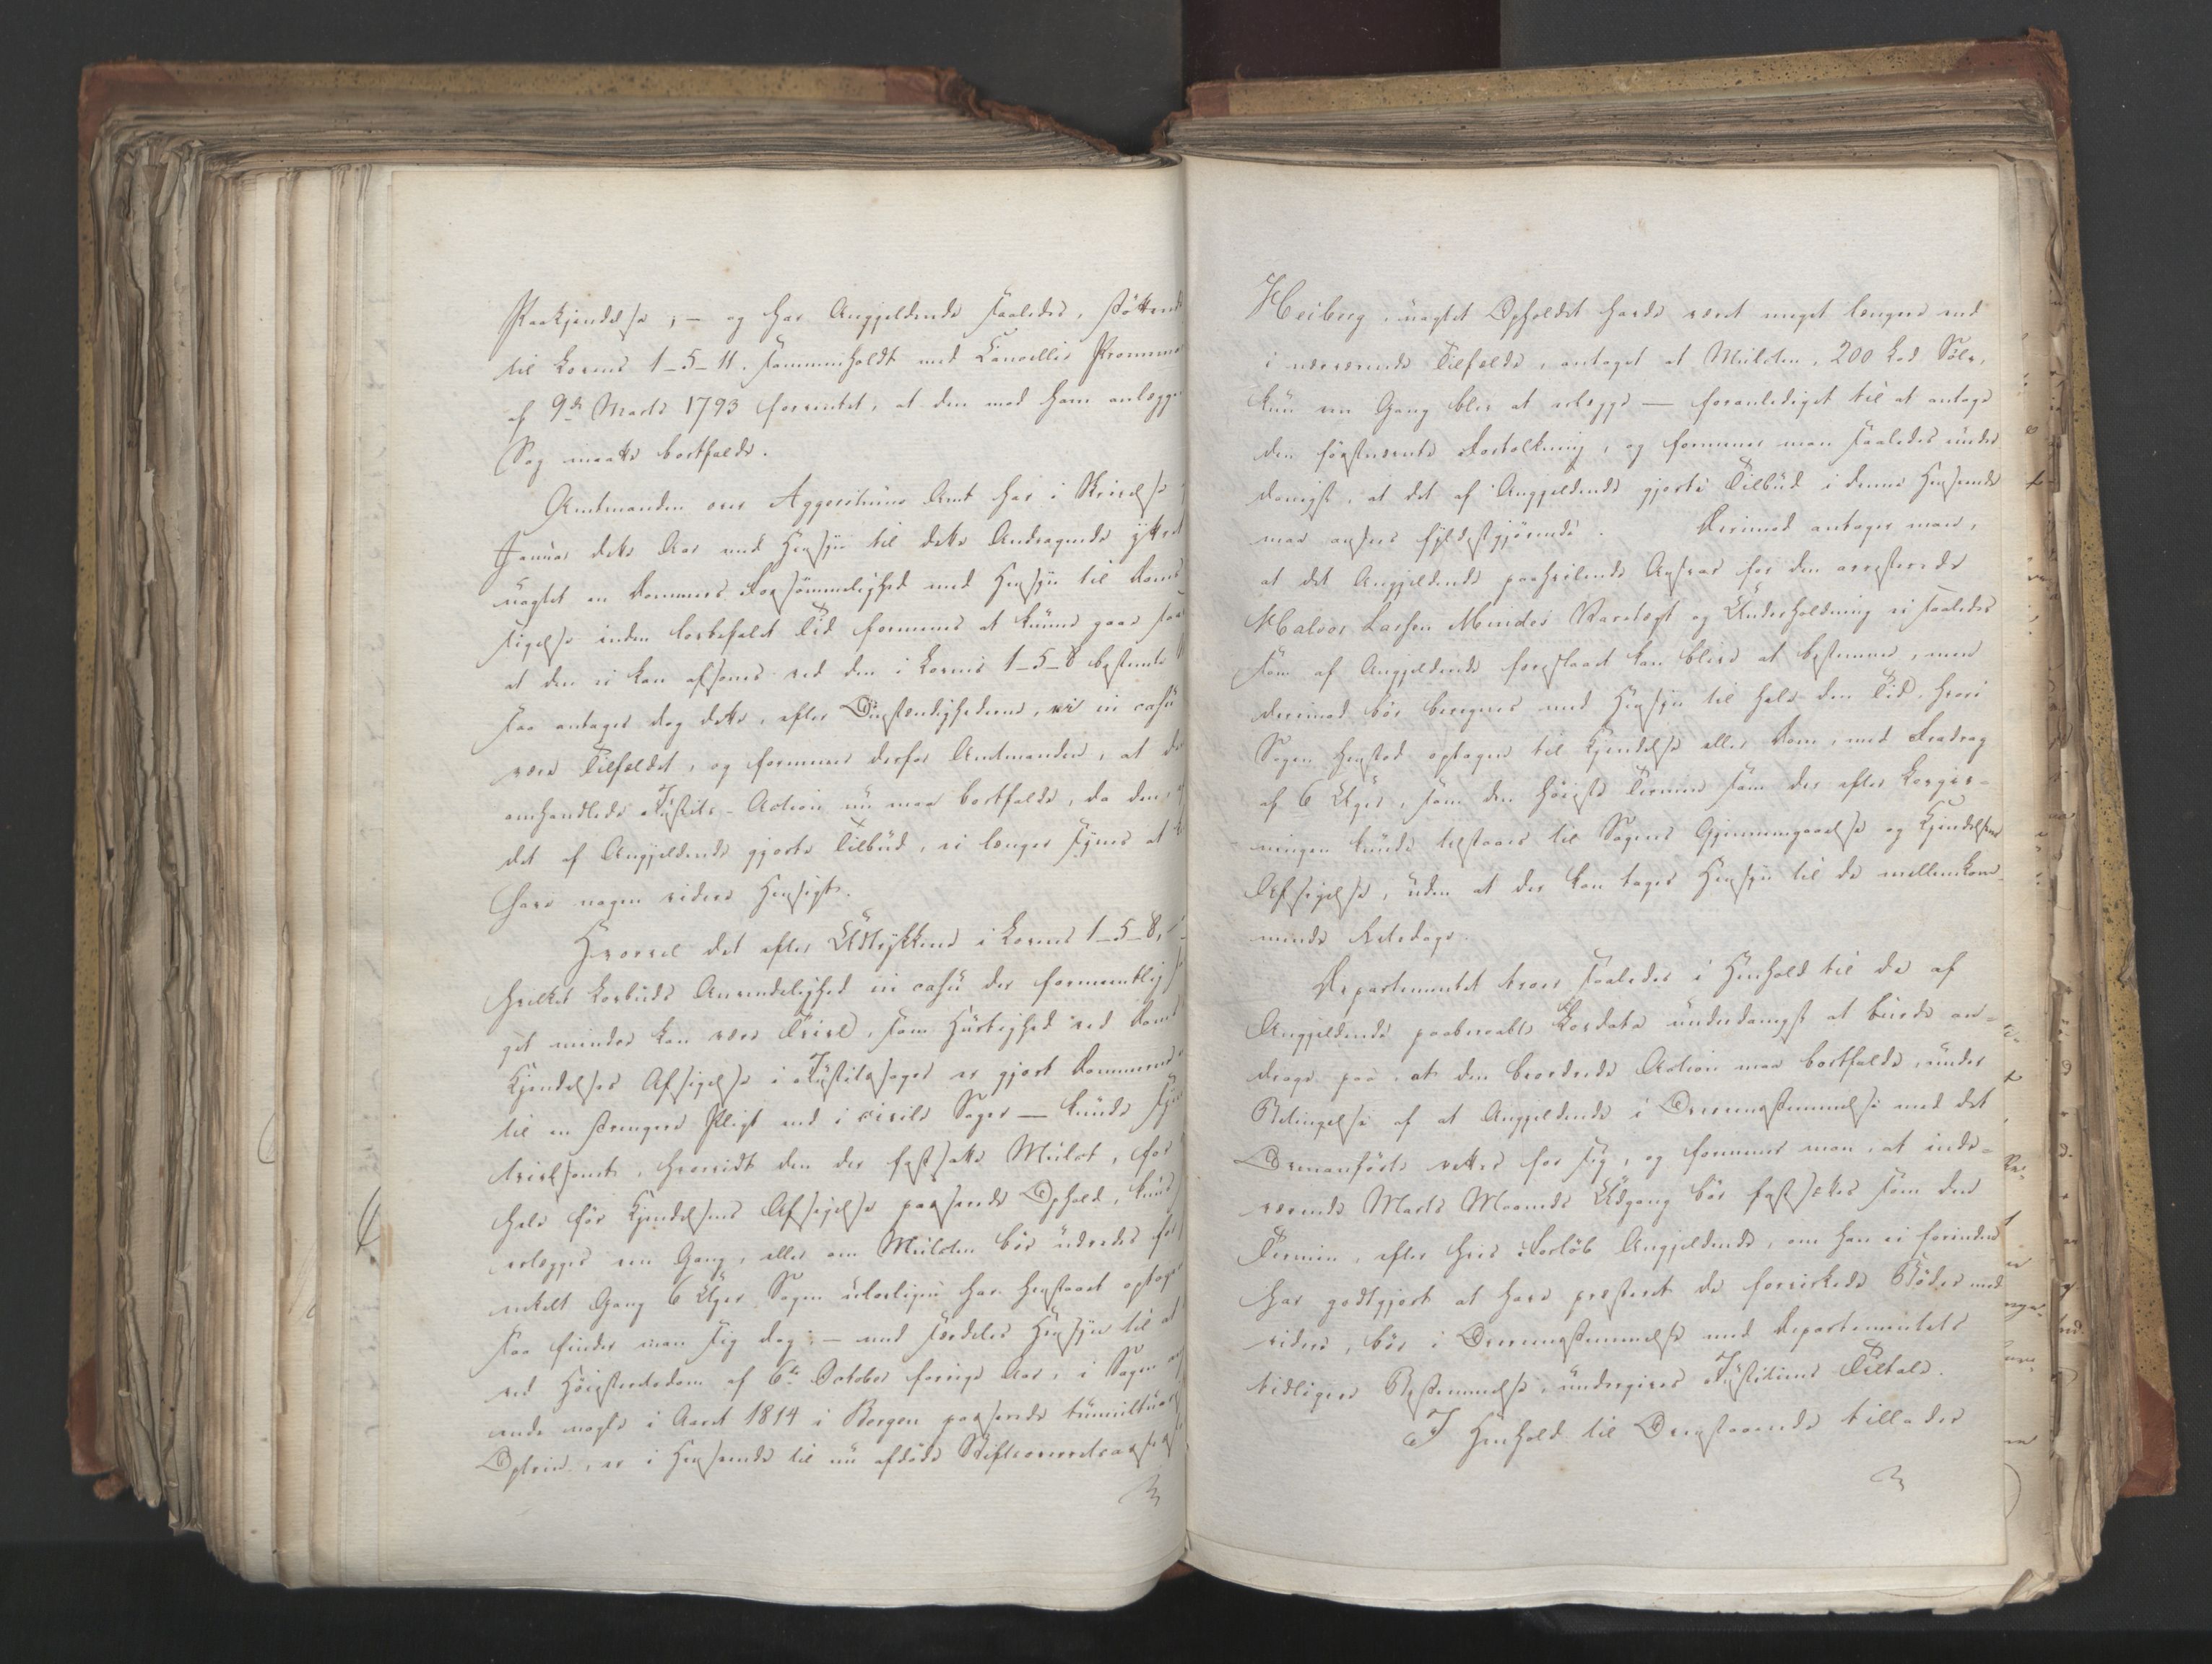 Paakjendelse; – og har Angjeldende saaledes, støttende
til Lovens 1–5–11. sammenholdt med Cancellie Promem
af 9de Marts 1793 formeentet, at den mod ham anlagte
Sag maatte bortfalde.
Amtmanden over Aggershuus Amt har i Skrivelse
Januar dette Aar med Hensyn til dette Andragende yttret
uagtet en Dommers Forsømmelighed med Hensyn til Doms
sigelse inden lovbefalet Tid formenes at kunne gaae saa
at den ei kan afsones ved den i Lovens 1–5–8 bestemte
saa antages dog dette, efter Omstændighederne, ei in casu
være Tilfældet, og formener derfor Amtmanden, at d
omhandlede Justits-Action nu maa bortfalde, da den,
det af Angjeldende gjorte Tilbud, ei længer synes at
have nogen videre Hensigt.
Hvorvel det efter Udtrykkene i Lovens 1–5–8,
hvilket Lovbuds Anvendelighed in casu der formeentlig
get mindre kan være Tvivl, som Hurtighed ved Doms
Kjendelses Afsigelse i Justitssager er gjort Dommerne
til en strengere Pligt end i civile Sager — kunde syn
tvivlsomt, hvorvidt den der fastsatte Mulct, for
hele før Kjendelsens Afsigelse passerede Ophold, kun
erlægges een Gang, eller om Mulcten bør udredes for
enkelt Gang 6 Uger Sagen ulovligen har henstaaet optaget
saa finder man sig dog; – med særdeles Hensyn til at
ved Høiesteretsdom af 6te October forrige Aar, i Sagen
ende nogle i Aaret 1814 i Bergen passerede tumultuar
Optrin, er i Henseende til nu afdøde Stiftsoverretsass
Heiberg, uagtet Opholdet havde været meget længere end
i nærværende Tilfælde, antaget at Mulcten, 200 Lod Sølv,
kun een Gang blev at erlægge — foranlediget til at antage
den førstnævnte Fortolkning, og formener man saaledes under
danigst, at det af Angjeldende gjorte Tilbud i denne Henseende
maa ansees fyldestgjørende. Derimod antager man,
at det Angjeldende paahvilende Ansvar for den arresterede
Halvor Larsen Mendes Varetægt og Underholdning ei saaledes
som af Angjeldende foreslaaet kan blive at bestemme, men
derimod bør beregnes med Hensyn til hele den Tid, hvori
Sagen henstod optagen til Kjendelse eller Dom, med Fradrag
af 6 Uger, som den høieste Termin som der efter Lovgiv-
ningen kunde tilstaaes til Sagens Gjennemgaaelse og Kjendelsens
Afsigelse, uden at der kan tages Hensyn til de mellemkom-
mende Retsdage.
Departementet troer saaledes i Henhold til de af
Angjeldende paaberaabte Lovdata underdanigst at burde an-
drage paa, at den beordrede Action maa bortfalde, under
Betingelse af at Angjeldende i Overeensstemmelse med det
Ovenanførte retter for sig, og formener man, at inde-
værende Marts Maaneds Udgang bør fastsættes som den
Termin, efter hvis Forløb Angjeldende, om han ei forinden
har godtgjort at have præsteret de forvirkede Bøder med
videre, bør i Overeensstemmelse med Departementets
tidligere Bestemmelse, undergives Justitiens Tiltale.
I Henhold til Ovenstaaende tillades